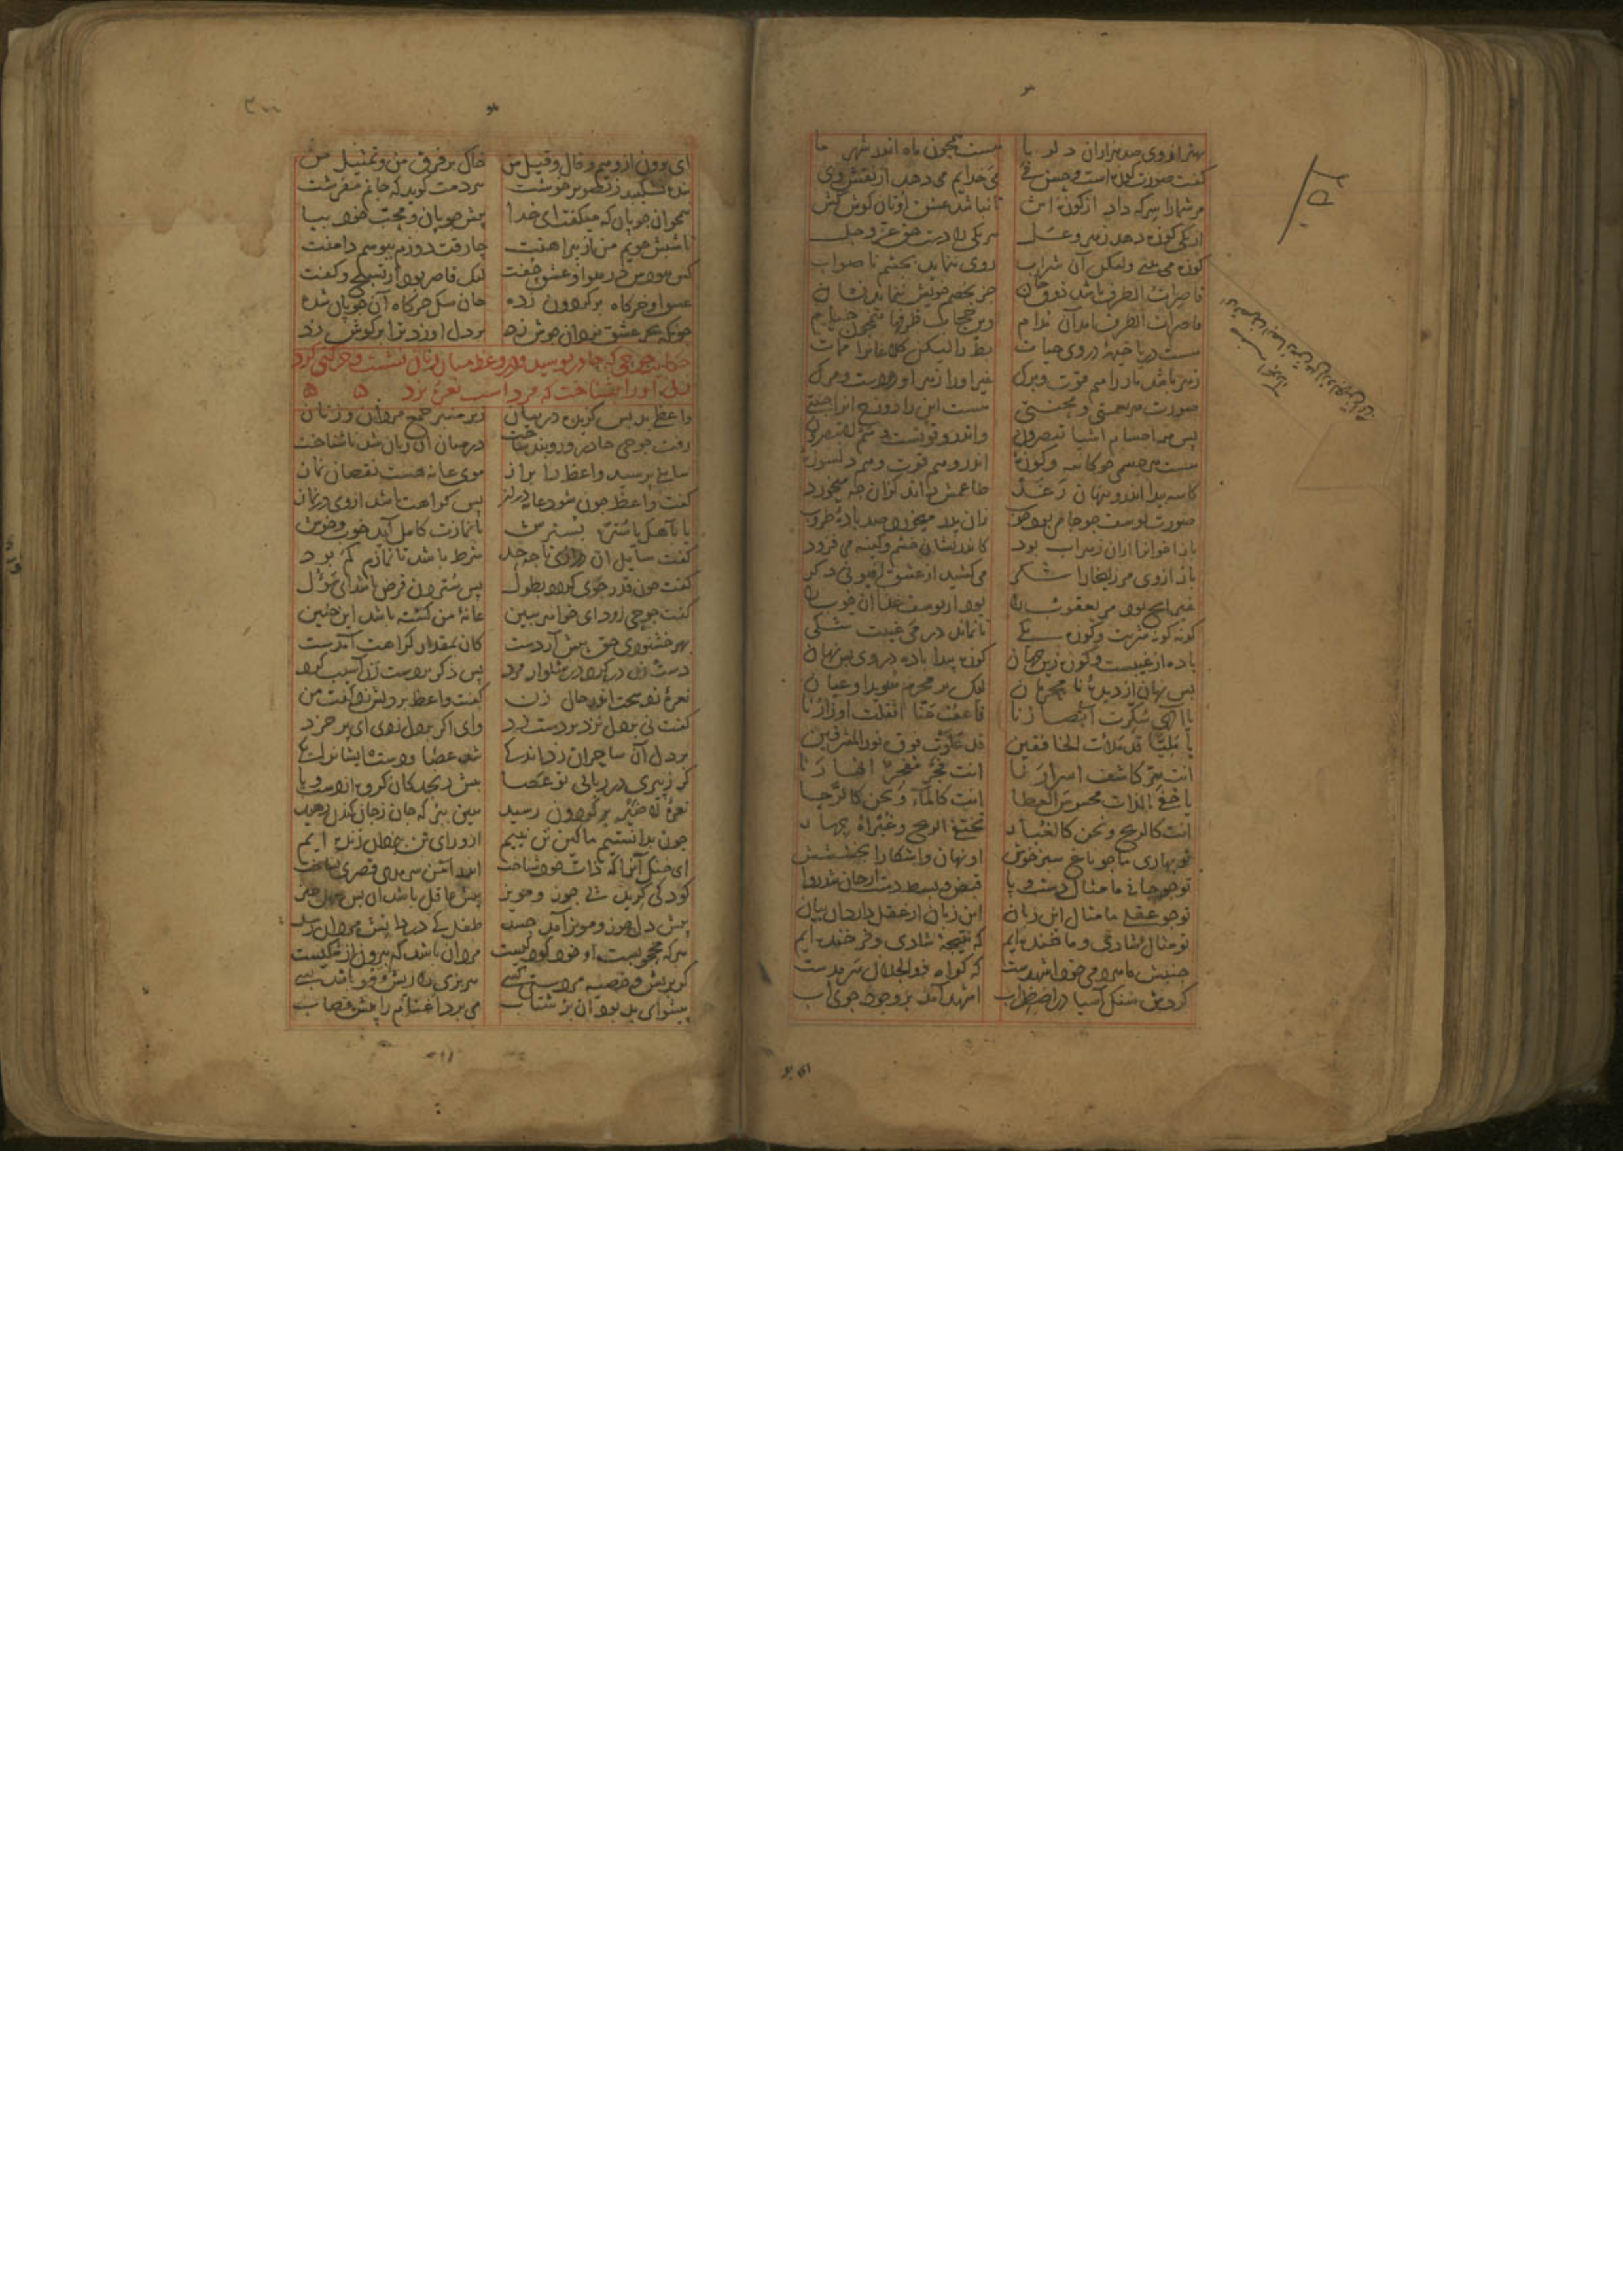 بهتر از وی صد هزاران دلربا هست همچون ماه اندر شهر ما
گفت صورت کوزه است و حسن می می خدایم می دهد از نقش وی
مر شمارا سرکه داد از کوزه اش تا نباشد عشق اوتان گوش کش
از یکی کوزه دهد زهر و عسل هر یکی را دست حق عز و جل
کوزه می بینی ولیکن آن شراب روی ننماید بچشم ناصواب
قاصرات الطرف باشد ذوق جان جز بخصم خویش ننماید نشان
قاصرات الطرف آمد آن مدام وین حجاب ظرفها همچون خیام
هست دریا خیمهٔ در وی حیات بط را لیکن کلاغانرا ممات
زهر باشد مار را هم قوت و برگ غیر او را زهر او دردست و مرگ
صورت هر نعمتی و محنتی هست این را دوزخ آنرا جنتی
پس همه اجسام اشیا تبصرون واندرو قوتست و سم لا تبصرون
هست هر جسمی چو کاسه و کوزهٔ اندرو هم قوت و هم دلسوزهٔ
کاسه پیدا اندرو پنهان رغد طاعمش داند کزان چه میخورد
صورت یوسف چو جامی بود خوب زان پدر میخورد صد بادهٔ طروب
باز اخوانرا ازان زهراب بود کاندریشان خشم و کینه می فزود
باز از وی مر زلیخا را شکر می کشید از عشق افیونی دگر
غیر آنچ بود مر یعقوب را بود از یوسف غذا آن خوب را
گونه گونه شربت و کوزه یکی تا نماند در می غیبت شکی
باده از غیبست و کوزه زین جهان کوزه پیدا باده در وی بس نهان
بس نهان از دیدهٔ نامحرمان لیک بر محرم هویدا و عیان
یا الهی سکرت ابصارنا فاعف عنا اثقلت اوزارنا
یا خفیا قد ملأت الخافقین قد علوت فوق نور المشرقین
انت سر کاشف اسرارنا انت فجر مفجر انهارنا
یا خفی الذات محسوس العطا انت کالماء و نحن کالرحا
انت کالریح و نحن کالغبار تختفی الریح و غبراه جهار
تو بهاری ما چو باغ سبز خوش او نهان و آشکارا بخششش
تو چو جانی ما مثال دست و پا قبض و بسط دست از جان شد روا
تو چو عقلی ما مثال این زبان این زبان از عقل دارد این بیان
تو مثال شادی و ما خنده ایم که نتیجهٔ شادی و فرخنده ایم
جنبش ما هر دمی خود اشهدست که گواه ذوالجلال سرمدست
گردش سنگ آسیا در اضطراب اشهد آمد بر وجود جوی آب
ای برون از وهم و قال و قیل من خاک بر فرق من و تمثیل من
بنده نشکیبد ز تصویر خوشت هر دمت گوید که جانم مفرشت
همچو آن چوپان که میگفت ای خدا پیش چوپان و محب خود بیا
تا شپش جویم من از پیراهنت چارقت دوزم ببوسم دامنت
کس نبودش در هوا و عشق جفت لیک قاصر بود از تسبیح و گفت
عشق او خرگاه بر گردون زده جان سگ خرگاه آن چوپان شده
چونکه بحر عشق یزدان جوش زد بر دل او زد ترا بر گوش زد
حکایت جوحی که چادر پوشید و در وعظ میان زنان نشست و حرکتی کرد
زنی او را بشناخت که مردست نعرهٔ بزد
واعظی بد بس گزیده در بیان زیر منبر جمع مردان و زنان
رفت جوحی چادر و روبند ساخت در میان آن زنان شد ناشناخت
سایلی پرسید واعظ را براز موی عانه هست نقصان نماز
گفت واعظ چون شود عانه دراز پس کراهت باشد از وی در نماز
یا بآهک یا ستره بسترش تا نمازت کامل آید خوب و خوش
گفت سایل آن درازی تا چه حد شرط باشد تا نمازم کم بود
گفت چون قدر جوی گردد بطول پس ستردن فرض باشد ای سؤل
گفت جوحی زود ای خواهر ببین عانهٔ من گشته باشد این چنین
بهر خشنودی حق پیش آر دست کان بمقدار کراهت آمدست
دست زن در کرد در شلوار مرد پس ذکر بر دست زن آسیب کرد
نعرهٔ زد سخت اندر حال زن گفت واعظ بر دلش زد گفت من
گفت نی بر دل نزد بر دست زد وای اگر بر دل زدی ای پر خرد
بر دل آن ساحران زد اندکی شد عصا و دست ایشان را یکی
گر ز پیری در ربایی تو عصا بیش رنجد کان گروه از دست و پا
نعرهٔ لا ضیر بر گردون رسید هین ببر که جان ز جان کندن رهید
چون بدانستیم ما کین تن نییم از ورای تن بیزدان زنده ایم
ای خنک آنرا که ذات خود شناخت اندر امن سرمدی قصری بساخت
کودکی گرید پی جوز و مویز پیش عاقل باشد آن بس سهل چیز
پیش دل جوز و مویز آمد جسد طفل کی در دانش مردان رسد
هر که محجوبست او خود کودکیست مرد آن باشد که بیرون از شکیست
گر بریش و خصیه مردستی کسی هر بزی را ریش و مو باشد بسی
پیشوای بد بود آن بز شتاب می برد اغنام را پیش قصاب